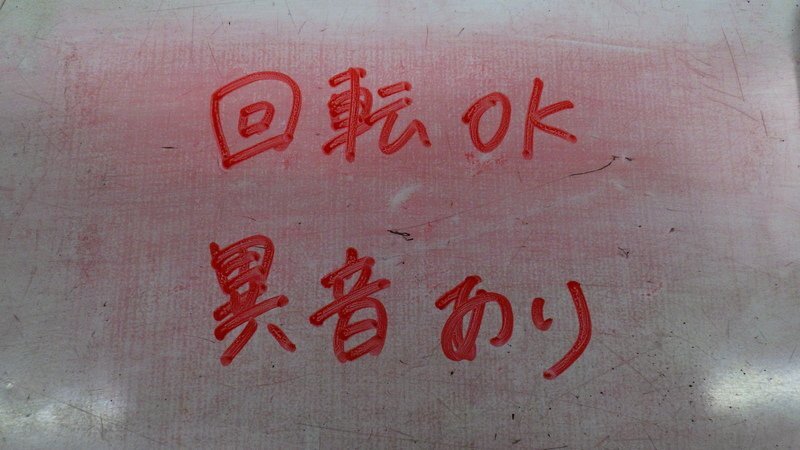 回転 OK
異音あり